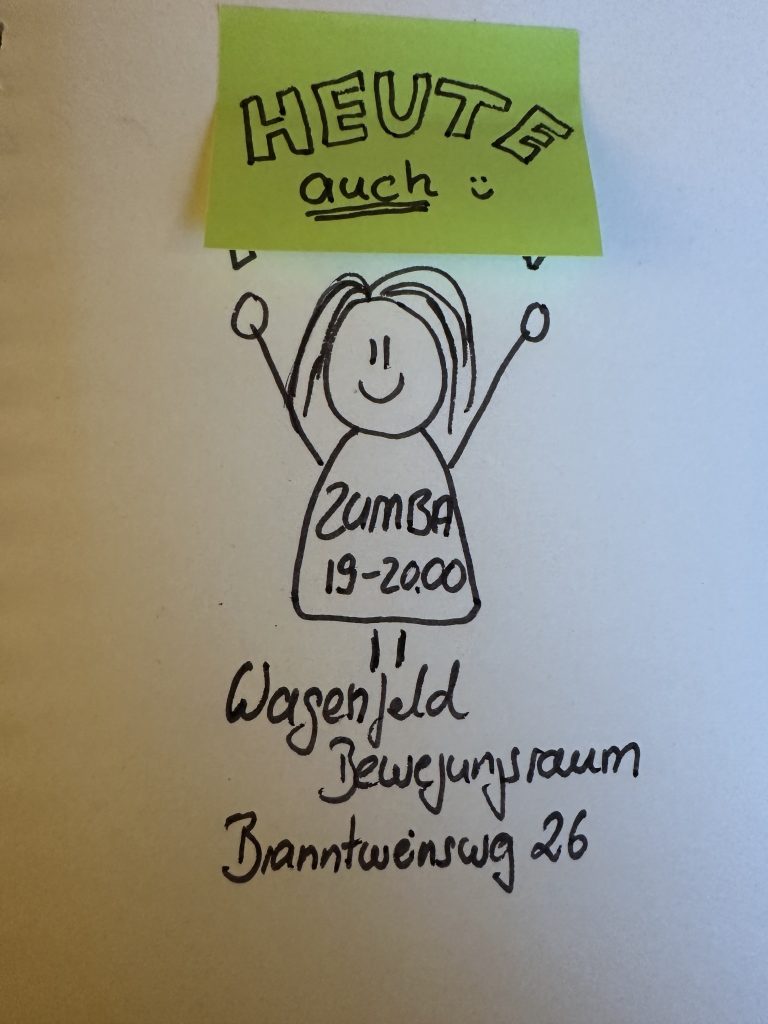 HEUTE
auch ü
ZUMBA
19-20.00
Wagenfeld
Bewegungsraum
Branntweinswg 26